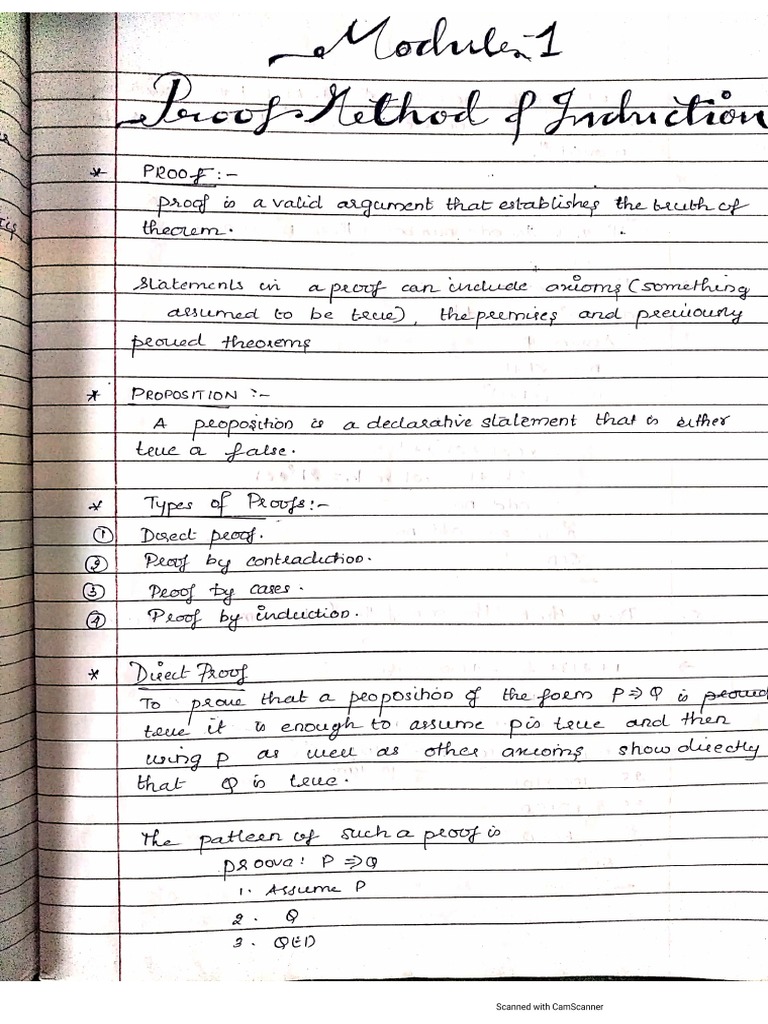 Module-1
Proof Method & Induction
* PROOF :-
proof is a valid argument that establishes the truth of
theorem.
Statements in a proof can include axioms (something
assumed to be true), the premises and previously
proved theorems
* PROPOSITION :-
A proposition is a declarative statement that is either
true or false.
* Types of Proofs :-
① Direct proof.
② Proof by contradiction.
③ Proof by cases.
④ Proof by induction.
* Direct Proof
To prove that a proposition of the form P ⇒ Q is proved
true it is enough to assume p is true and then
using p as well as other axioms show directly
that Q is true.
The pattern of such a proof is
proova: P ⇒ Q
1. Assume P
2. Q
3. QED
Scanned with CamScanner